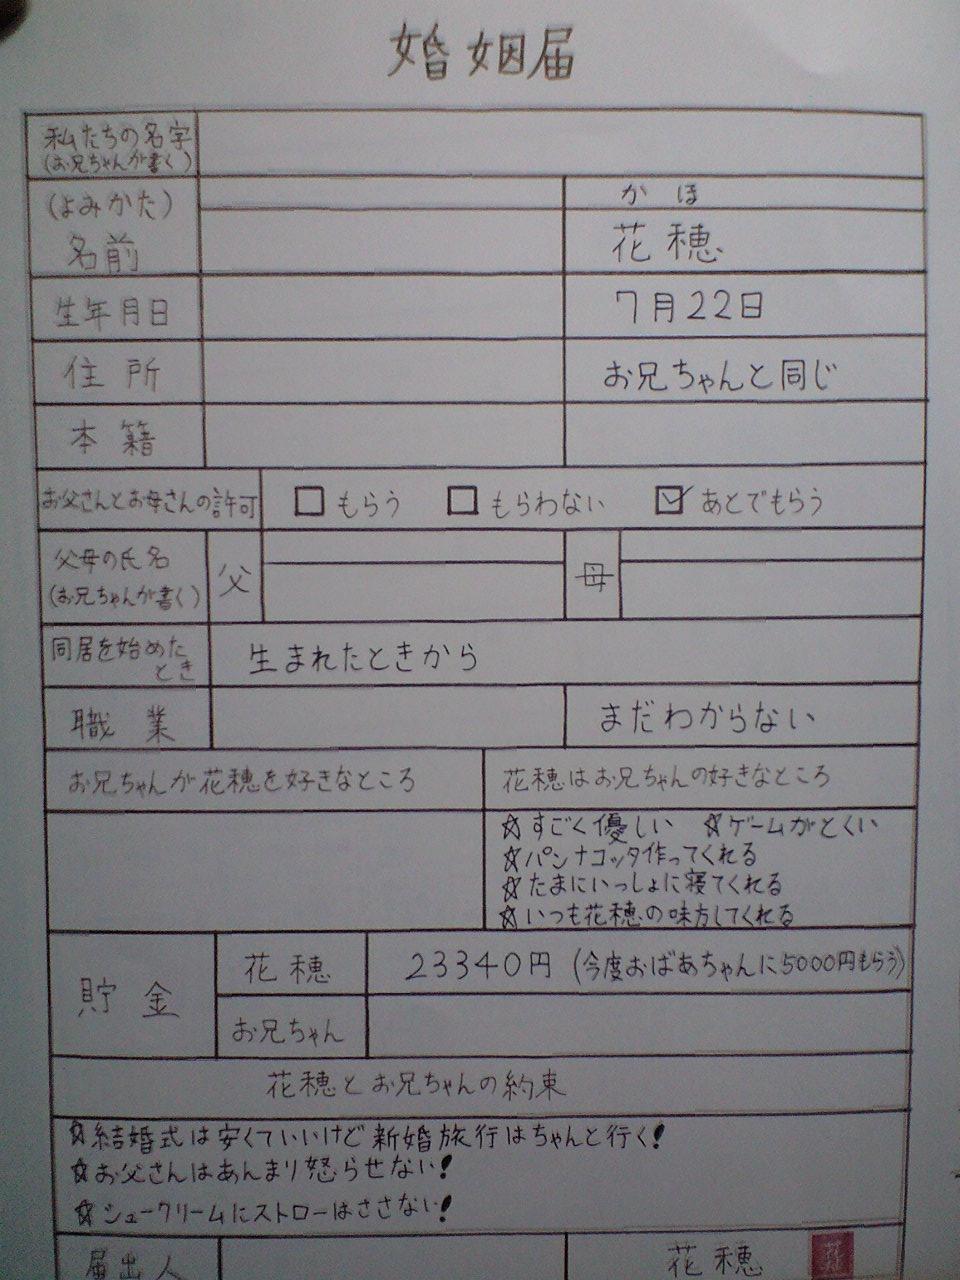 婚姻届
私たちの名字
(お兄ちゃんが書く)
(よみかた)
かほ
名前
花穂
生年月日
7月22日
住所
お兄ちゃんと同じ
本籍
お父さんとお母さんの許可
もらう
もらわない
あとでもらう
父母の氏名
(お兄ちゃんが書く)
父
母
同居を始めた
とき
生まれたときから
職業
まだわからない
お兄ちゃんが花穂を好きなところ
花穂はお兄ちゃんの好きなところ
☆すごく優しい ☆ゲームがとくい
☆パンナコッタ作ってくれる
☆たまにいっしょに寝てくれる
☆いつも花穂の味方してくれる
貯金
花穂
23340円 (今度おばあちゃんに5000円もらう)
お兄ちゃん
花穂とお兄ちゃんの約束
☆結婚式は安くていいけど新婚旅行はちゃんと行く!
☆お父さんはあんまり怒らせない!
☆シュークリームにストローはささない!
届出人
花穂